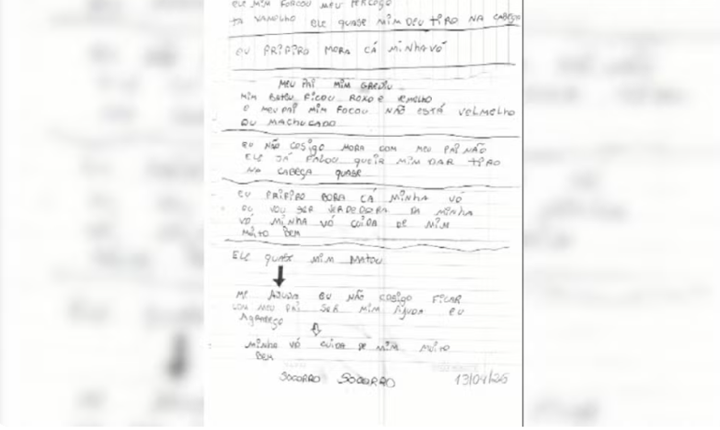 ELE MIM FORCOU MEU PERCOÇO
TA VAMELHO ELE QUASE MIM DEU TIRO NA CABEÇA
EU PRIFIRO MORA CÁ MINHA VÓ
MEU PAI MIM GREDIU
MIM BATEU FICOU ROXO E
O MEU PAI MIM FOCOU NÃO ESTÁ VELMELHO
OU MACHUCADO
EU NÃO COSIGO MORA COM MEU PAI NÃO
ELE JÁ FALOU QUEIA MIM DAR TIRO
NA CABEÇA QUASE
EU PRIFIRO BORA CÁ MINHA VÓ
EU VOU SER DA MINHA
VÓ MINHA VÓ CUIDA DE MIM
MUITO BEM
ELE QUASE MIM MATOU
ME AJUDA EU NÃO COSIGO FICAR
COM MEU PAI SER MIM AJUDA EU
AGRADEÇO
MINHA VÓ CUIDA DE MIM MUITO
BEM
SOCORRO SOCORRO 13/04/26